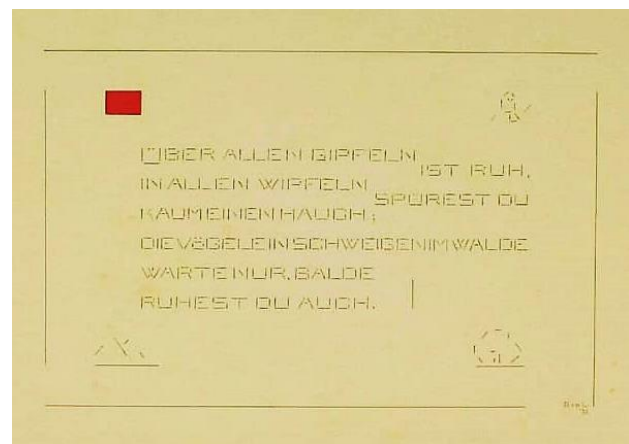 ÜBER ALLEN GIPFELN
IST RUH,
IN ALLEN WIPFELN
SPÜREST DU
KAUM EINEN HAUCH;
DIE VÖGELEIN SCHWEIGEN IM WALDE
WARTE NUR, BALDE
RUHEST DU AUCH.